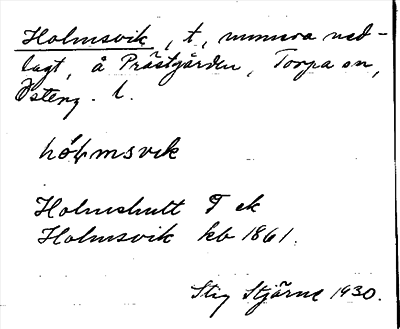 Holmsvik, t, numera ned-
lagt, å Prästgården, Torpa sn,
Österg. l.
hólmsvik
Holmshult T ek
Holmsvik kb 1861.
Stig Stjärne 1930.